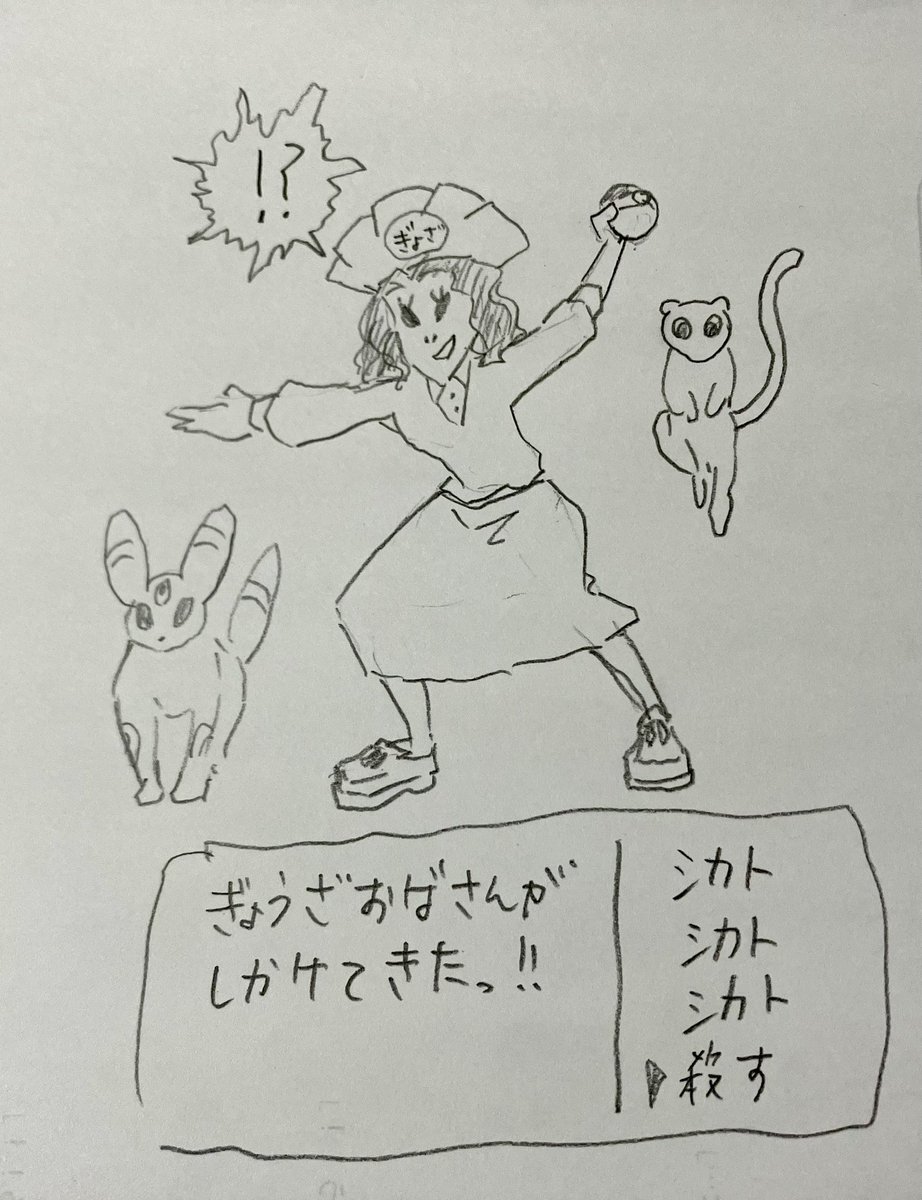 !?
ぎょざ
ぎょうざおばさんが
しかけてきたっ!!
シカト
シカト
シカト
▶殺す